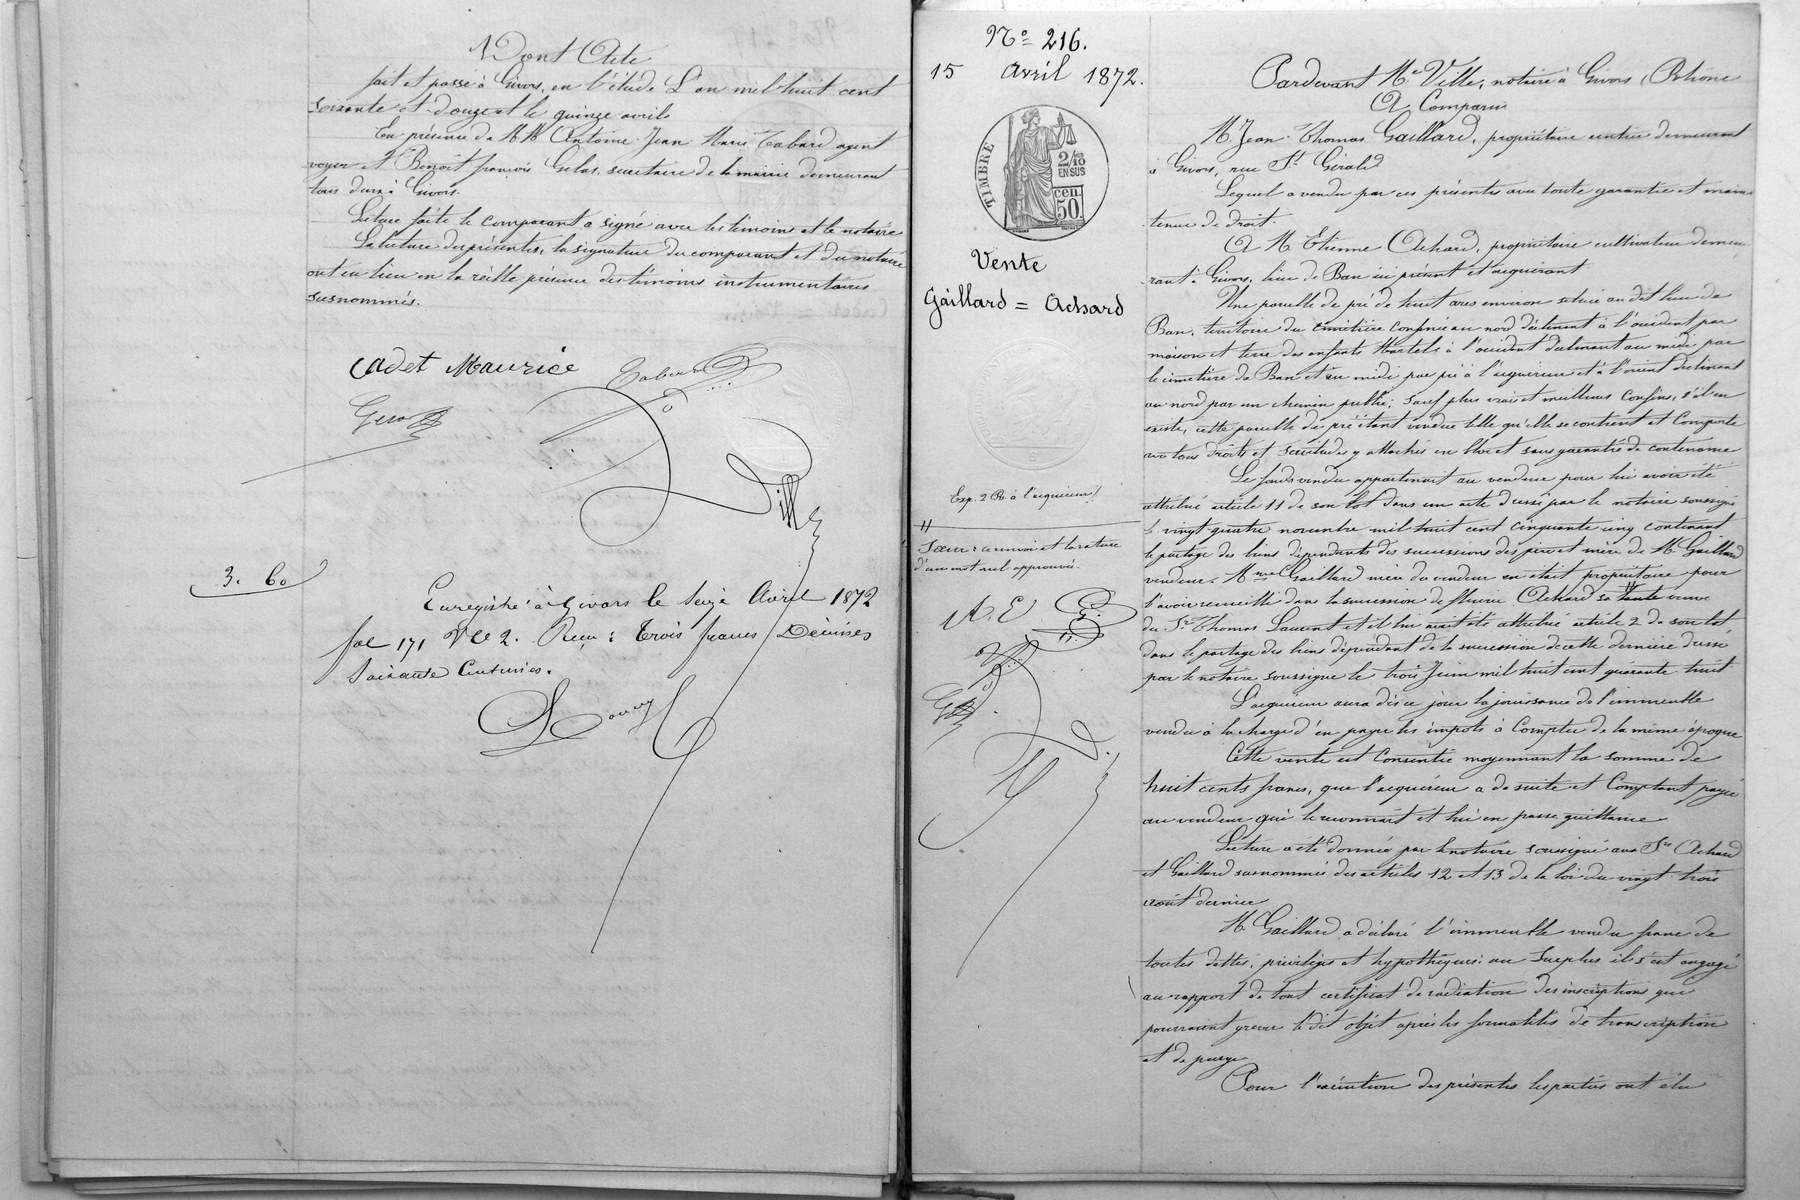 Dont Acte
fait et passé à Givors, en l'étude L'an mil huit cent
soixante et douze et le quinze avril
En présence de M.M. Antoine Jean Marie Tabard agent
voyer et Benoît françois Gelas, secrétaire de la mairie demeurant
tous deux à Givors.
Lecture faite le comparant a signé avec les témoins et le notaire
La lecture des présentes, la signature du comparant et du notaire
ont eu lieu en la réelle présence des témoins instrumentaires
susnommés.
Cadet Maurice
Ville
3. 60
Enregistré à Givors le Seize Avril 1872
fol 171 Vo Ce 2. Reçu : trois francs Décimes
Soixante Centimes.
No 216.
15 Avril 1872.
TIMBRE
2/10
EN SUS
cen.
50.
Vente
Gaillard = Achard
Exp. 2 Ro à l'acquéreur
//
Sœur : renvoi et la rature
d'un mot nul approuvés.
A. E
Pardevant Me Ville, notaire à Givors (Rhône
A Comparu
M. Jean Thomas Gaillard, propriétaire rentier demeurant
à Givors, rue St Gérald
Lequel a vendu par ces présentes avec toute garantie et main
tenue de droit
A M. Etienne Achard, propriétaire cultivateur demeu
rant à Givors, lieu de Ban ici présent et acquérant
Une parcelle de pré de huit ares environ située au dit lieu de
Ban, territoire du cimetière confinée au nord déclinant à l'occident par
maison et terre des enfants Martel ; à l'occident déclinant au midi par
le cimetière de Ban et au midi par pré à l'acquéreur et à l'orient déclinant
au nord par un chemin public ; sauf plus vrais et meilleurs confins, s'il en
existe, cette parcelle de pré étant vendue telle qu'elle se contient et comporte
avec tous droits et servitudes y attachés en bloc et sans garantie de contenance
Le fonds vendu appartenait au vendeur pour lui avoir été
attribué article 11 de son lot dans un acte dressé par le notaire soussigné
le vingt quatre novembre mil huit cent cinquante cinq contenant
le partage des biens dépendants des successions des père et mère de M. Gaillard
vendeur. Mme Gaillard mère du vendeur en était propriétaire pour
l'avoir recueillie dans la succession de fleurie Achard sa tante veuve
du Sr Thomas Laurent et il lui avait été attribué article 2 de son lot
dans le partage des biens dépendant de la succession de cette dernière dressé
par le notaire soussigné le trois Juin mil huit cent quarante huit
L'acquéreur aura dès ce jour la jouissance de l'immeuble
vendu à la charge d'en payer les impôts à compter de la même époque
Cette vente est consentie moyennant la somme de
huit cents francs, que l'acquéreur a de suite et comptant payée
au vendeur qui le reconnaît et lui en passe quittance
Lecture a été donnée par le notaire soussigné aux Srs Achard
et Gaillard susnommés des articles 12 et 13 de la loi du vingt trois
août dernier
M. Gaillard a déclaré l'immeuble vendu franc de
toutes dettes, privilèges et hypothèques : au surplus il s'est engagé
au rapport de tout certificat de radiation des inscriptions qui
pourraient grever le dit objet après les formalités de transcription
et de purge
Pour l'exécution des présentes les parties ont élu